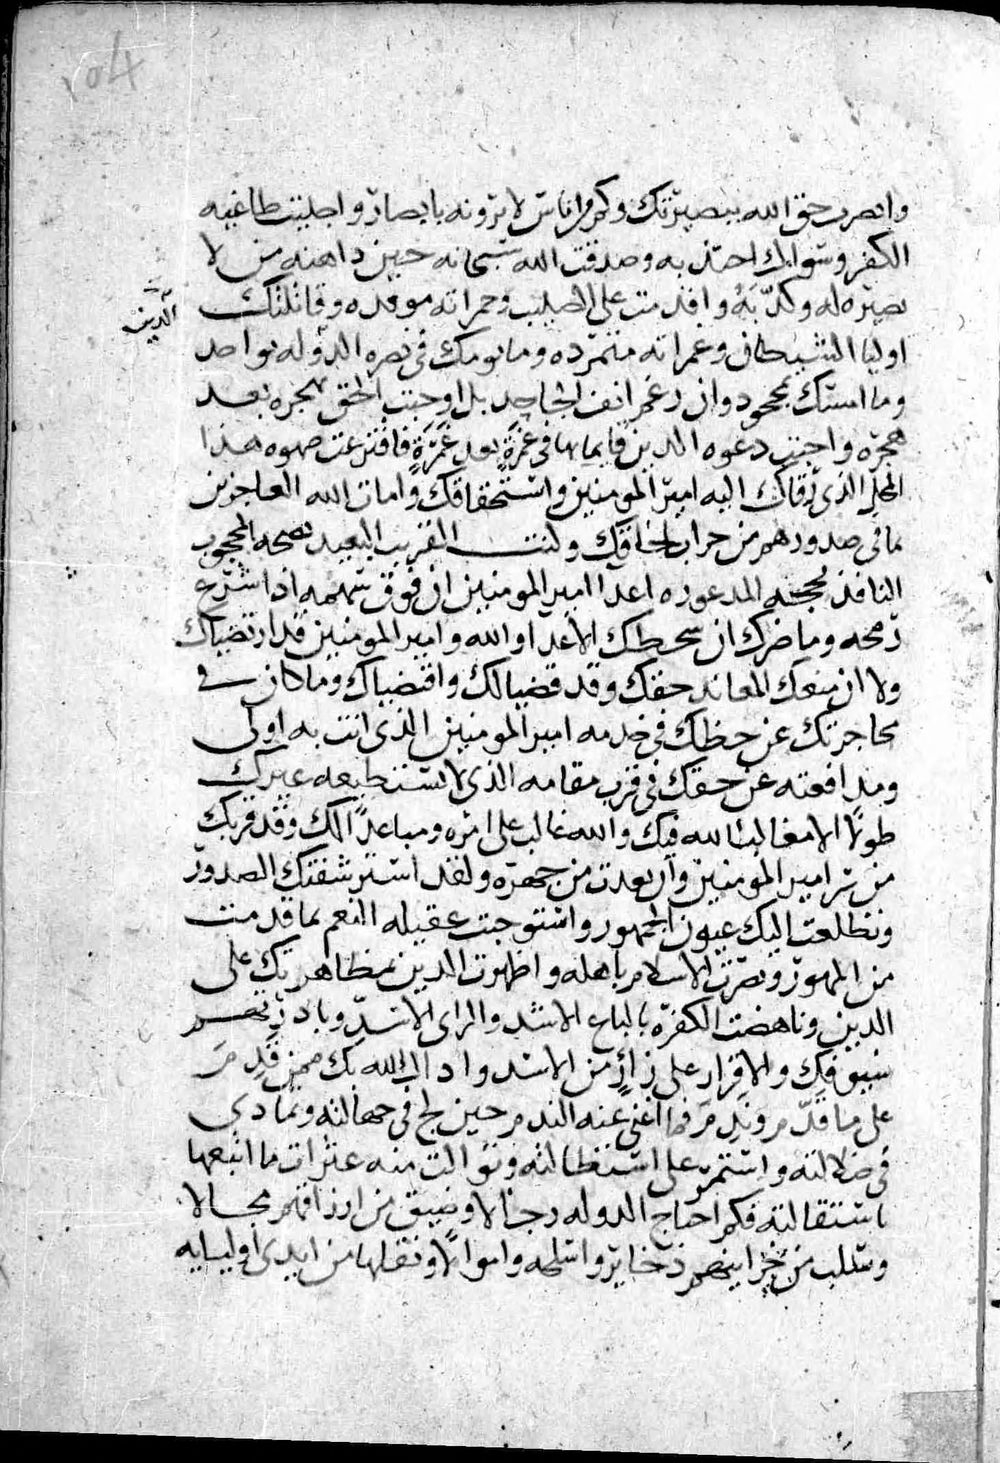 ١٥٤
وابصرت حق الله ببصيرتك وكم من اناس لا يرونه بابصار واجليت طاغيه
الكفر وسواك اجتذبه وصدقت الله سبحانه حين داهنه من لا
بصيره له وكذبه واقدمت على الصليب وجمراته موقده وقاتلتك
الدين
اوليا الشيطان وغمراته متمرده وما يومك في نصره الدوله بواحد
وما امسك بمجحود وان رغم انف الجاحد بل اوجبت الحق بهجره بعد
هجره واجبت دعوه الدين قايما بها في غمرة بعد غمرة فافترعت صهوه هذا
المحل الذي رقاك اليه امير المومنين واستحقاقك وامات الله العاجزين
بما في صدورهم من حسرات لحاقك وكنت القريب البعيد نصحه المحجوب
النافذ بحجته المذعوره اعدا امير المومنين ان فوق سهمه اذ اشرع
رمحه وما ضرك ان سخطك الاعدا والله وامير المومنين قد ارتضياك
ولا ان منعك المعاند حقك وقد قضيا لك واقتضياك وما كان في
محاجزتك عن حظك في خدمه امير المومنين الذي انت به اولى
ومدافعته عن حقك في قرب مقامه الذي لا تستطيعه غيرك
طولا الا مغالبا لله فيك والله غالب على امره ومباعدا لك وقد قربك
من سر امير المومنين وان بعدت من جهره ولقد استشرفتك الصدور
وتطلعت اليك عيون الجمهور واستوجبت عقيله النعم بما قدمت
من المهور ونصرت الاسلام باهله واظهرت الدين بمظاهرتك على
الدين وناهضت الكفره بالباع الاشد والراي الاسد وبادرتهم
سيوفك والاقرار على زار من الاسد وادال الله بك ممن قدم
على ما قدم وندم فما اغنى عنه الندم حين لج في جهالته وتمادى
في ضلالته واستمر على استطالته وتوالت منه عثرات ما اتبعها
باستقالته فكم اجتاح الدوله رجالا وضيق من ارزاقهم مجالا
وسلب من خزاينهم ذخاير واسلحه واموالا ونقلها من ايدي اوليايه